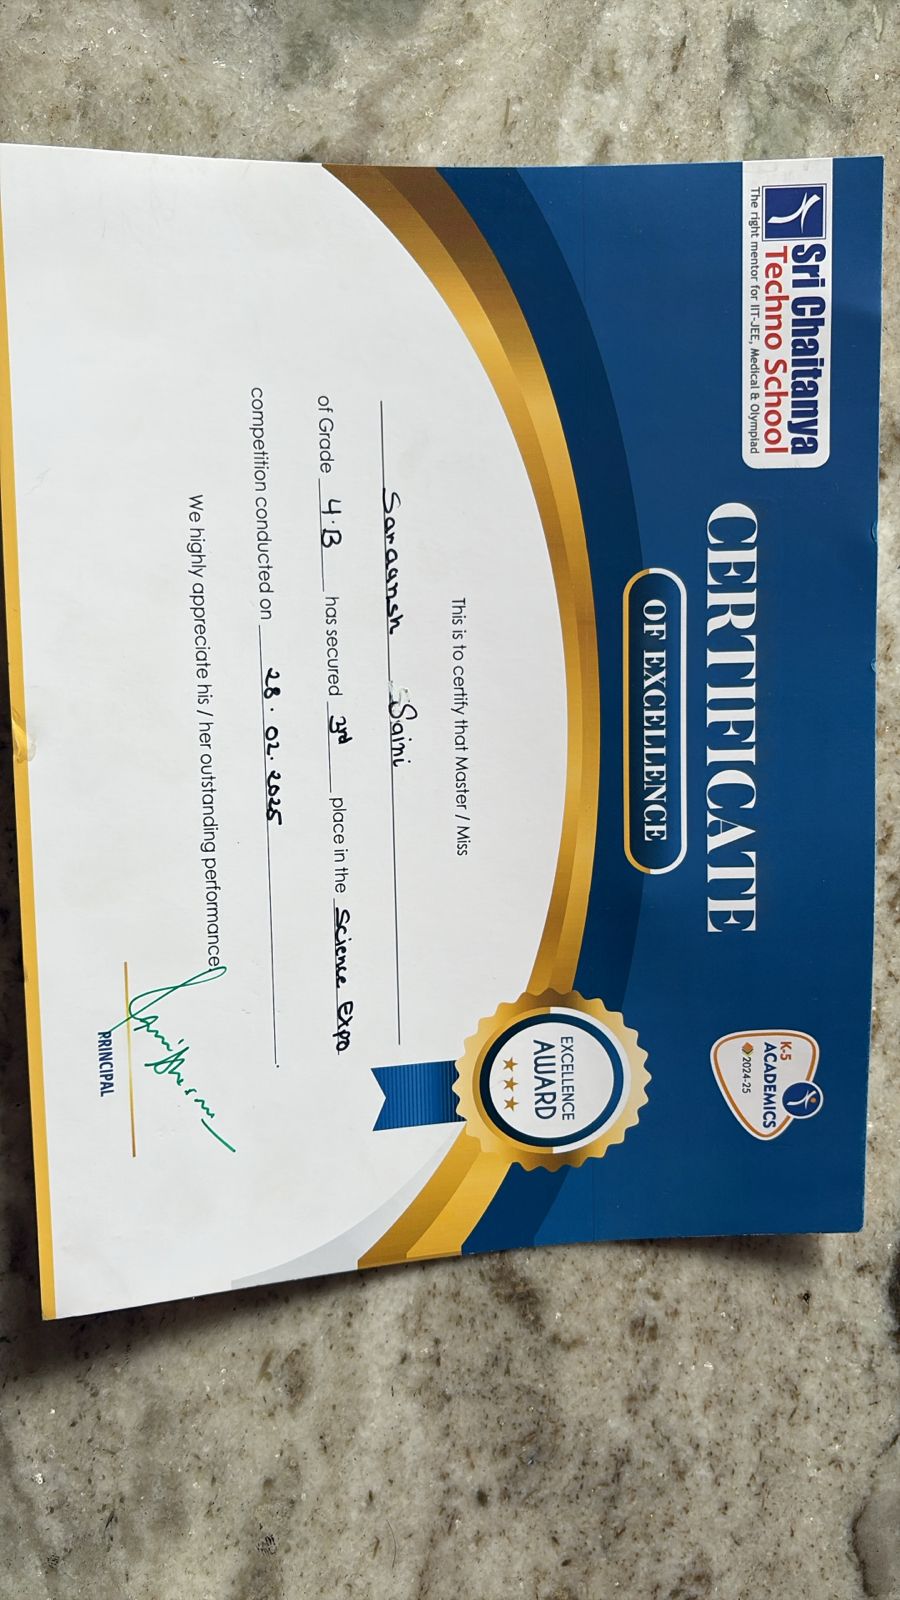 Sri Chaitanya
Techno School
The right mentor for IIT-JEE, Medical & Olympiad
K-5
ACADEMICS
2024-25
CERTIFICATE
OF EXCELLENCE
EXCELLENCE
AWARD
This is to certify that Master / Miss
Saraansh Saini
of Grade 4.B has secured 3rd place in the Science Expo
competition conducted on 28.02.2025.
We highly appreciate his / her outstanding performance.
PRINCIPAL